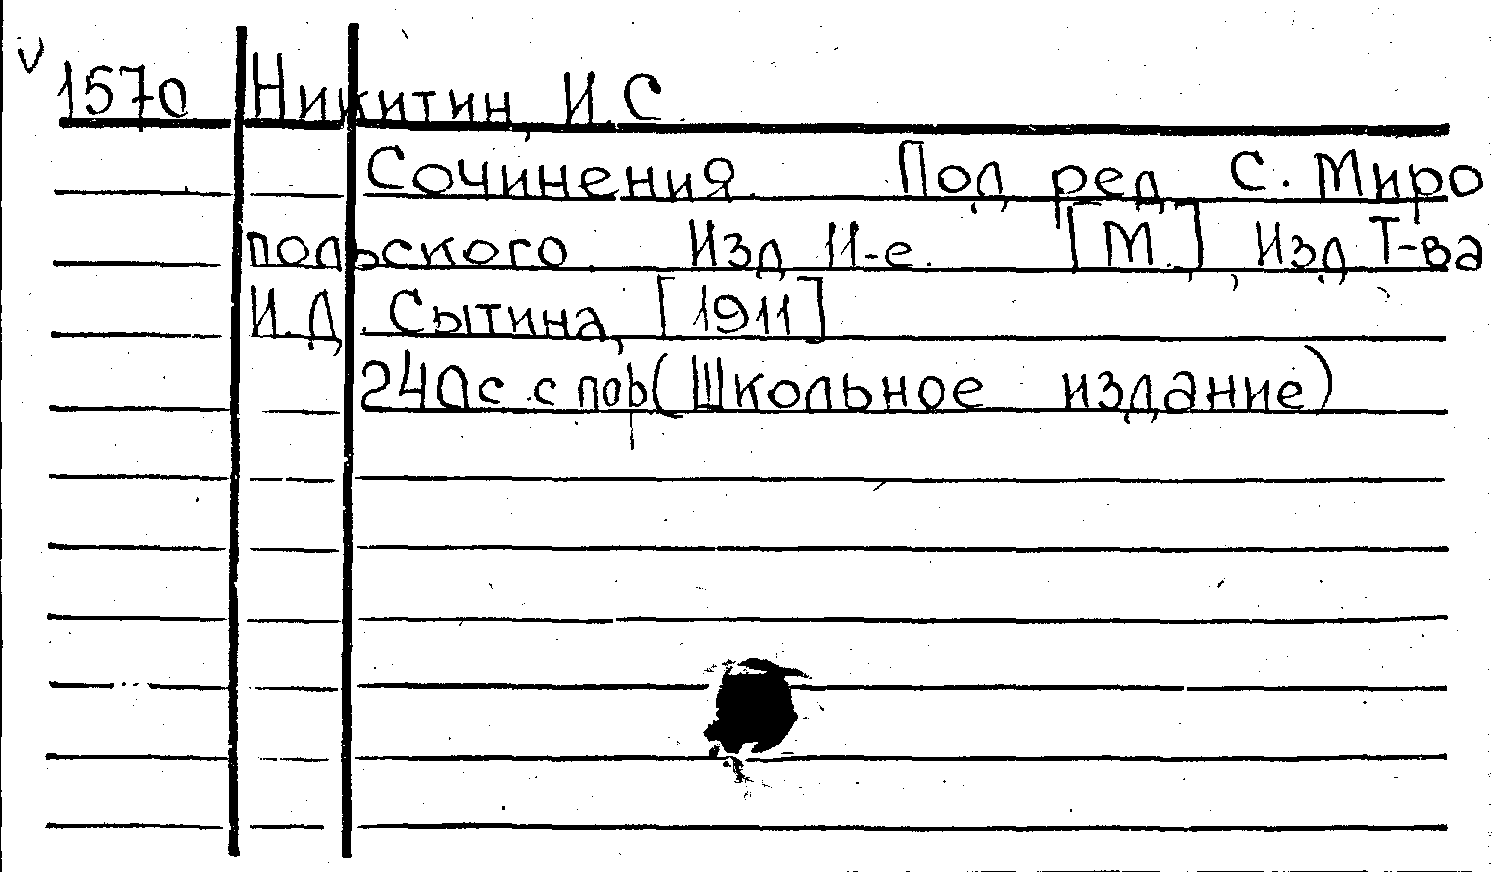 V 1570 Никитин, И.С.
Сочинения. Под ред. С. Миро
польского. Изд. 11-е. [М.], Изд. Т-ва
И.Д. Сытина, [1911]
240с. с пор. (Школьное издание)